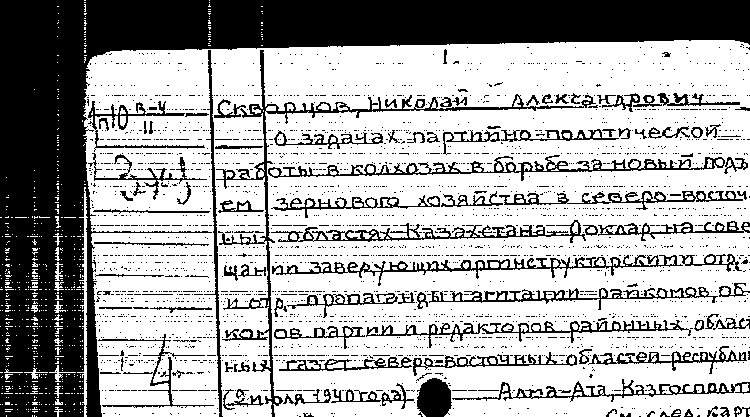 Скворцов, Николай Александрович
О задачах партийно-политической
работы в колхозах в борьбе за новый подъ
ем зернового хозяйства в северо-восточ
ных областях Казахстана. Доклад на сове
щании заведующих оргинструкторскими отд.
и отд. пропаганды и агитации райкомов, об
комов партии и редакторов районных, област
ных газет северо-восточных областей республи
(2 июля 1940 года) Алма-Ата, Казгосполит
См. след. карт
4